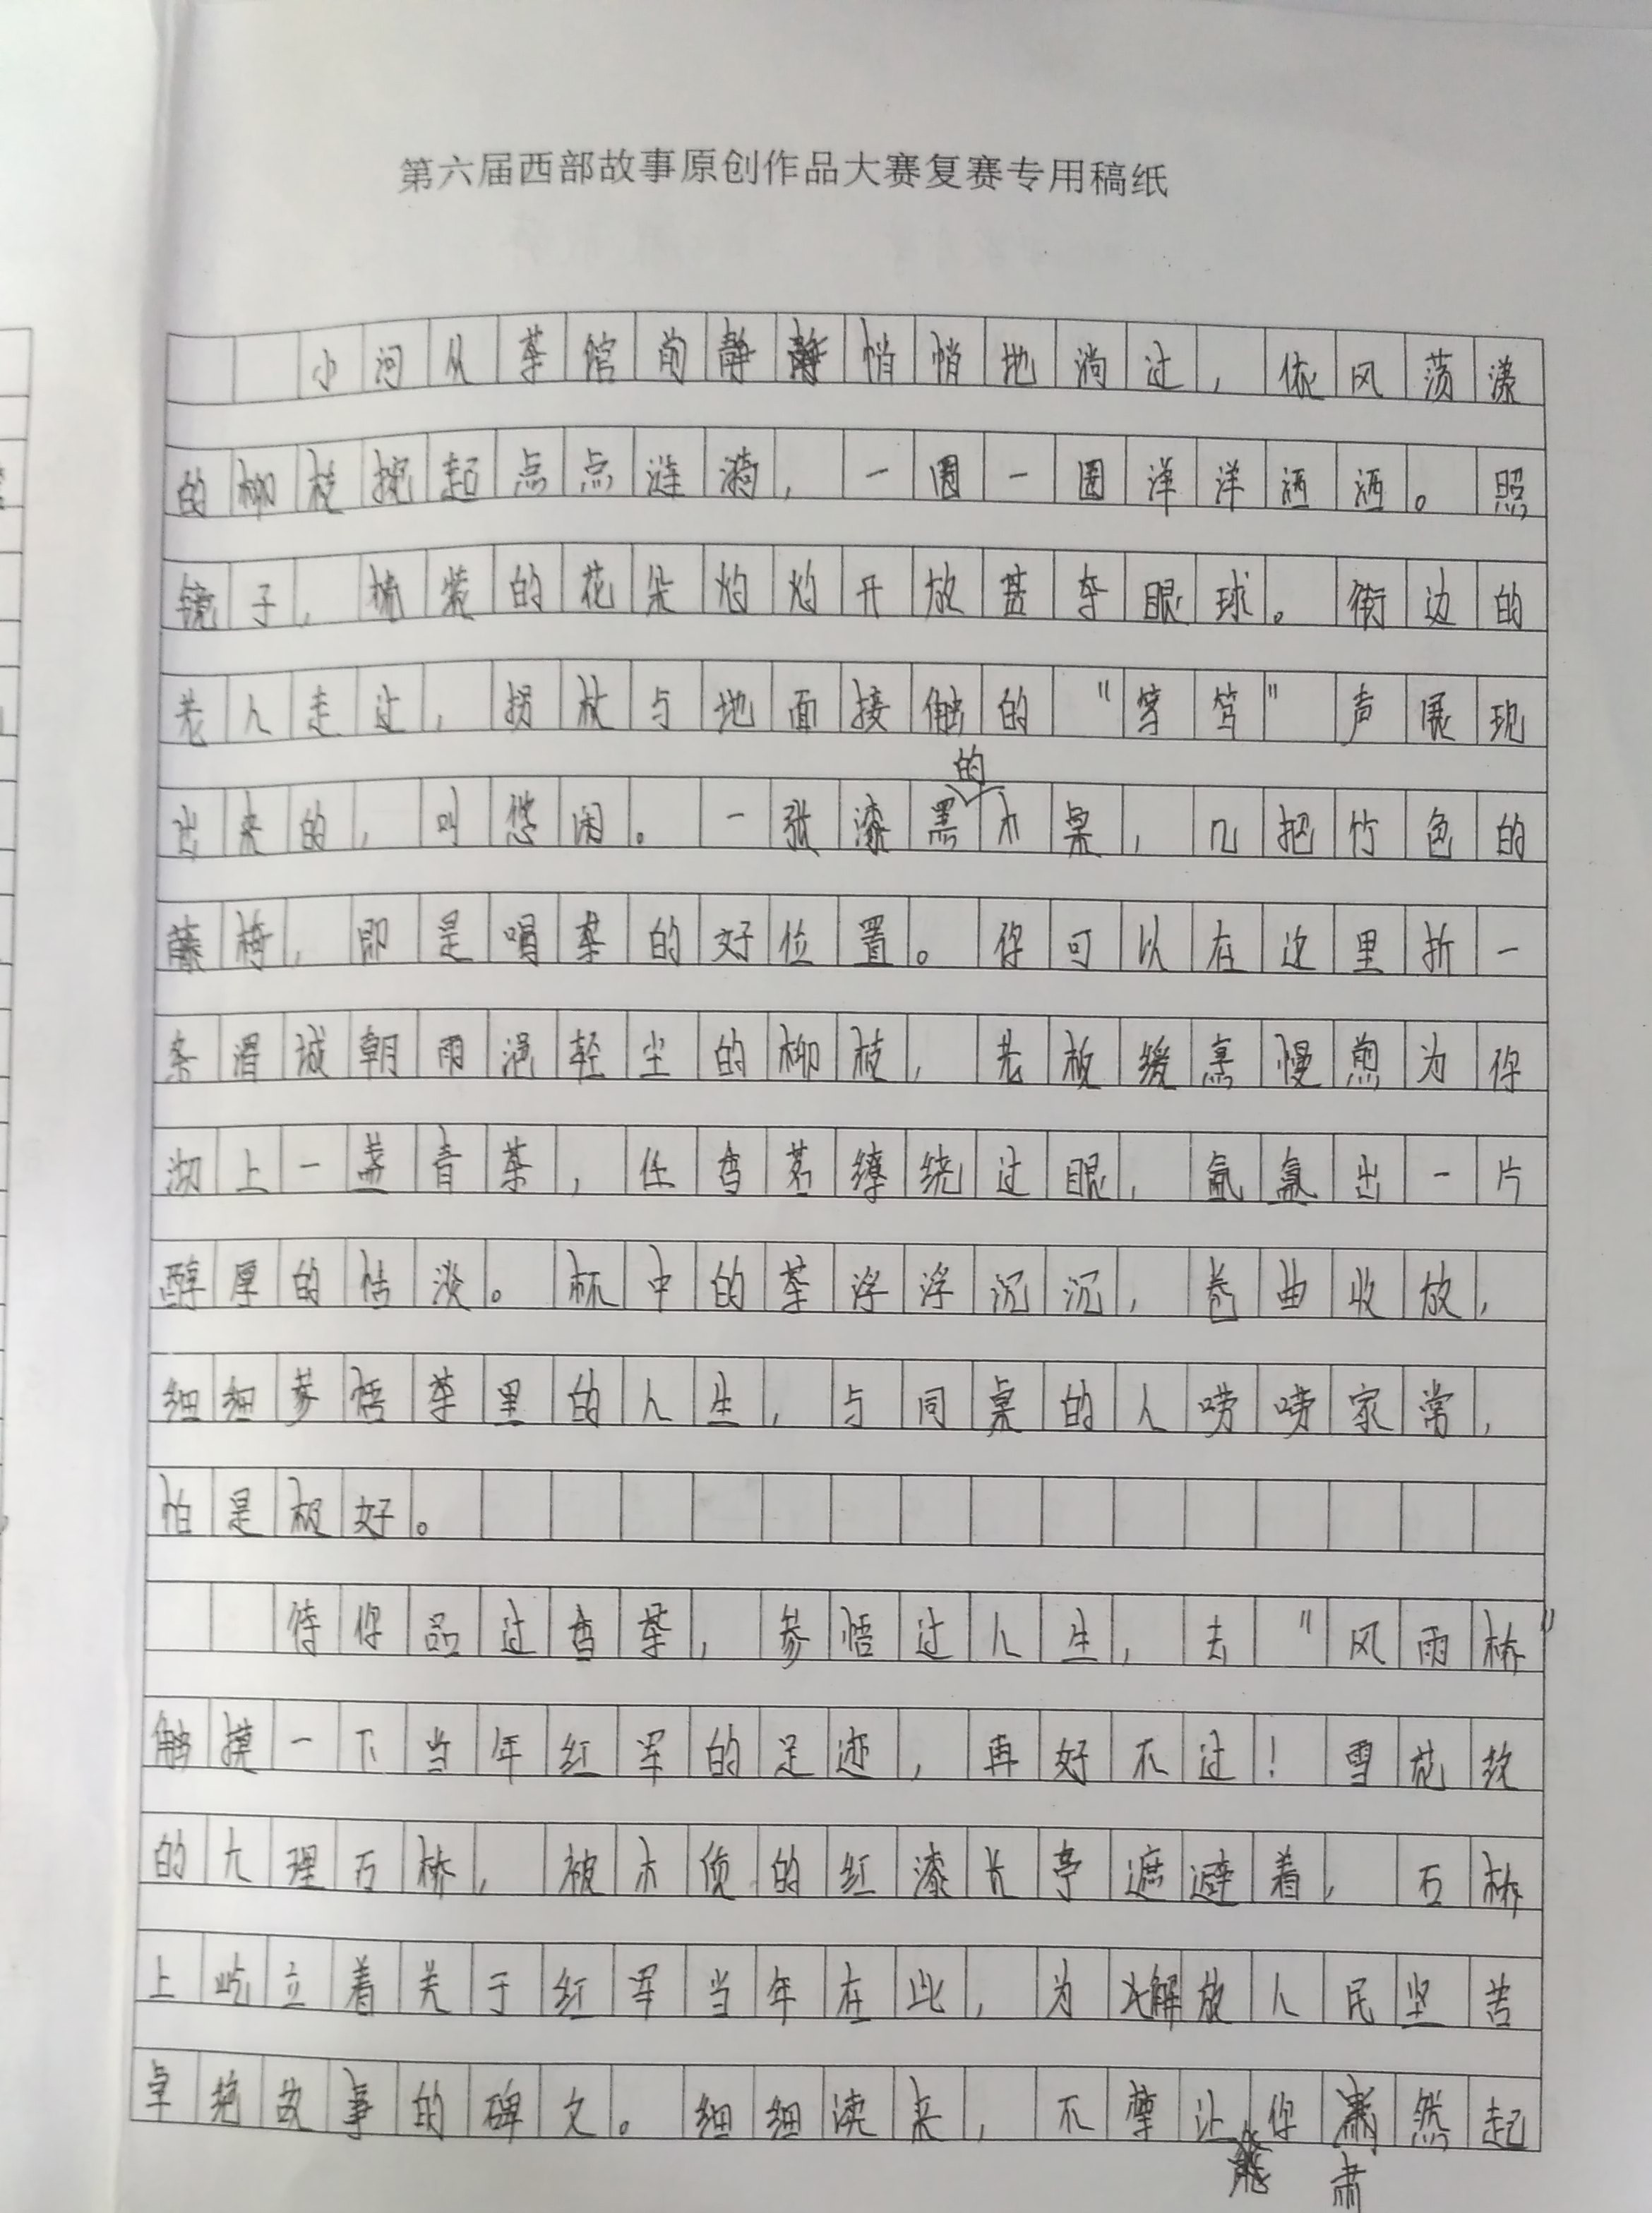 第六届西部故事原创作品大赛复赛专用稿纸
小河从茶馆前静静悄悄地淌过，依风荡漾
的柳枝挽起点点涟漪，一圈一圈洋洋洒洒。照
镜子，梳装的花朵灼灼开放甚夺眼球。街边的
老人走过，拐杖与地面接触的“笃笃”声展现
出来的，叫悠闲。一张漆黑的木桌，几把竹色的
藤椅，即是喝茶的好位置。你可以在这里折一
条渭城朝雨浥轻尘的柳枝，老板缓烹慢煎为你
沏上一盏青茶，任香茗缭绕过眼，氤氲出一片
醇厚的恬淡。杯中的茶浮浮沉沉，卷曲收放，
细细参悟茶里的人生，与同桌的人唠唠家常，
怕是极好。
待你品过香茶，参悟过人生，去“风雨桥”
触摸一下当年红军的足迹，再好不过！雪花纹
的大理石桥，被木质的红漆长亭遮避着，石桥
上屹立着关于红军当年在此，为解放人民坚苦
卓绝故事的碑文。细细读来，不孽让你肃然起